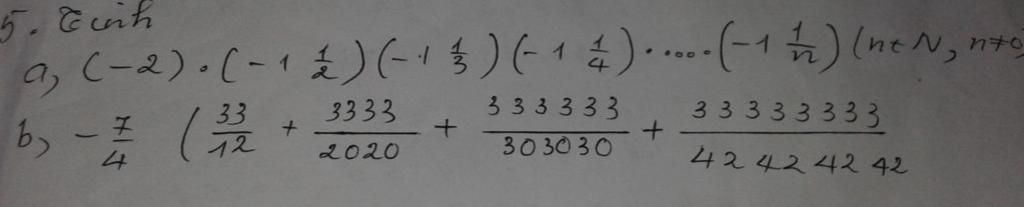 5. Tính
a, (-2).(-1 1/2)(-1 1/3)(-1 1/4).....(-1 1/n) (n∈N, n≠0
b, -7/4 (33/12 + 3333/2020 + 333333/303030 + 33333333/42424242